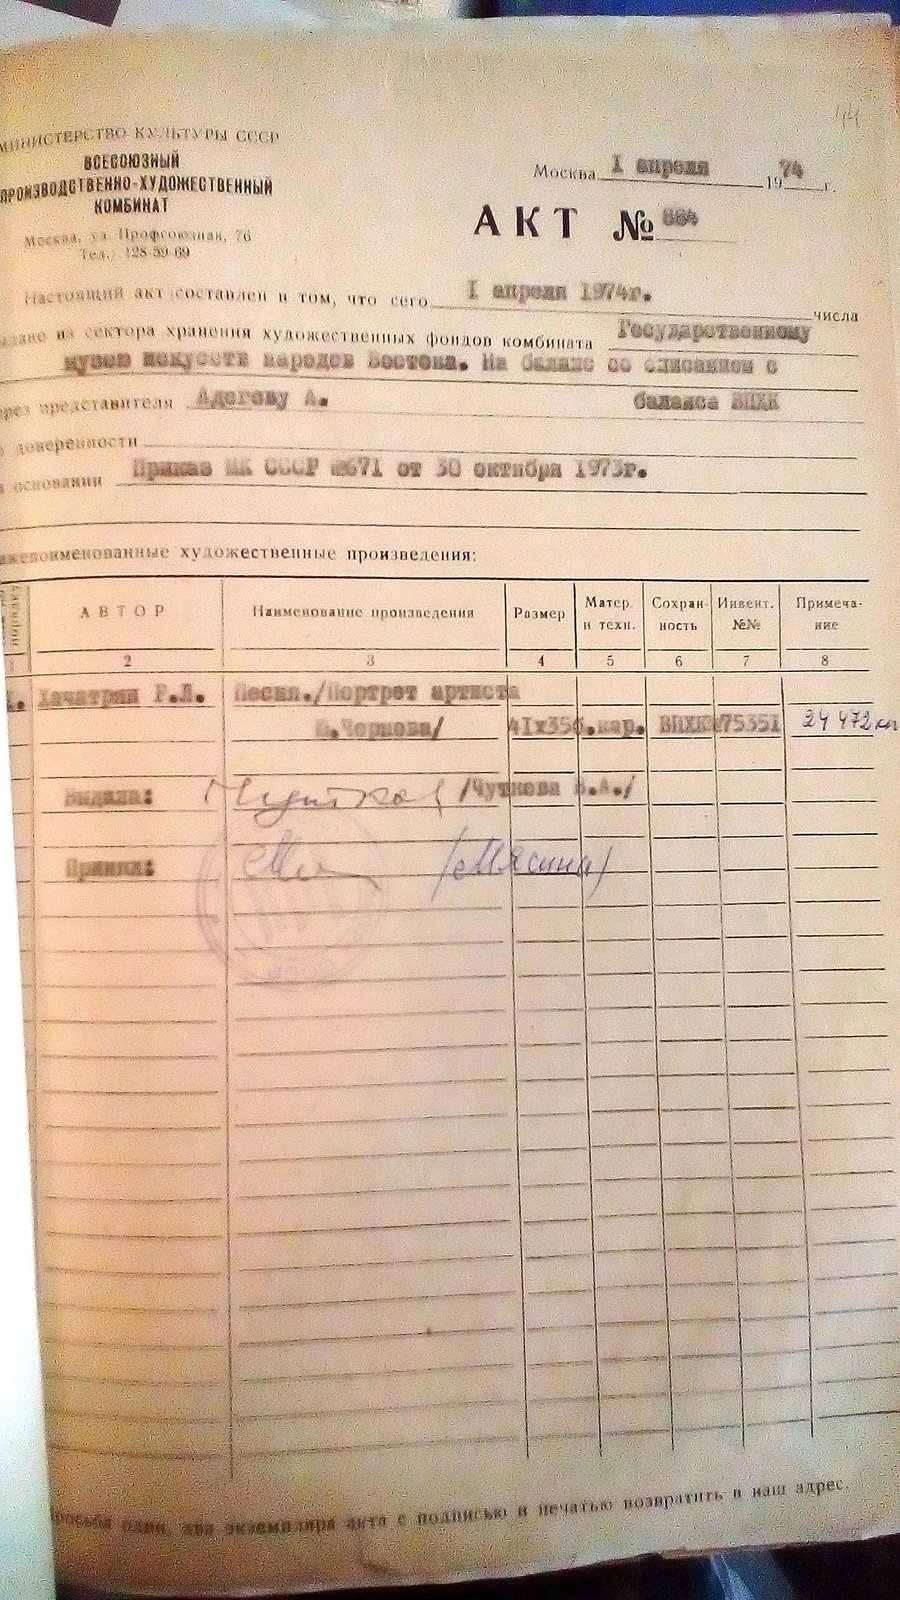 44
МИНИСТЕРСТВО КУЛЬТУРЫ СССР
ВСЕСОЮЗНЫЙ
ПРОИЗВОДСТВЕННО-ХУДОЖЕСТВЕННЫЙ
КОМБИНАТ
Москва, ул. Профсоюзная, 76
Тел.: 128-59-69
Москва I апреля 1974 г.
АКТ № 664
Настоящий акт составлен в том, что сего I апреля 1974г. числа
дано из сектора хранения художественных фондов комбината Государственному
музею искусств народов Востока. На баланс со списанием с
рез представителя Адогову А. баланса ВПХК
доверенности
основании Приказ МК СССР №671 от 30 октября 1973г.
жепоименованные художественные произведения:
АВТОР Наименование произведения Размер Матер. и техн. Сохран-ность Инвент. №№ Примеча-ние
1 2 3 4 5 6 7 8
1. Хачатрян Р.Л. Песня./Портрет артиста
Чернова/ 41х35 б.кар. ВПХК 75351 24472 кп
Выдала: /Чуткова В.А./
Приняла: /Мясина/
один, два экземпляра акта с подписью и печатью возвратить в наш адрес.